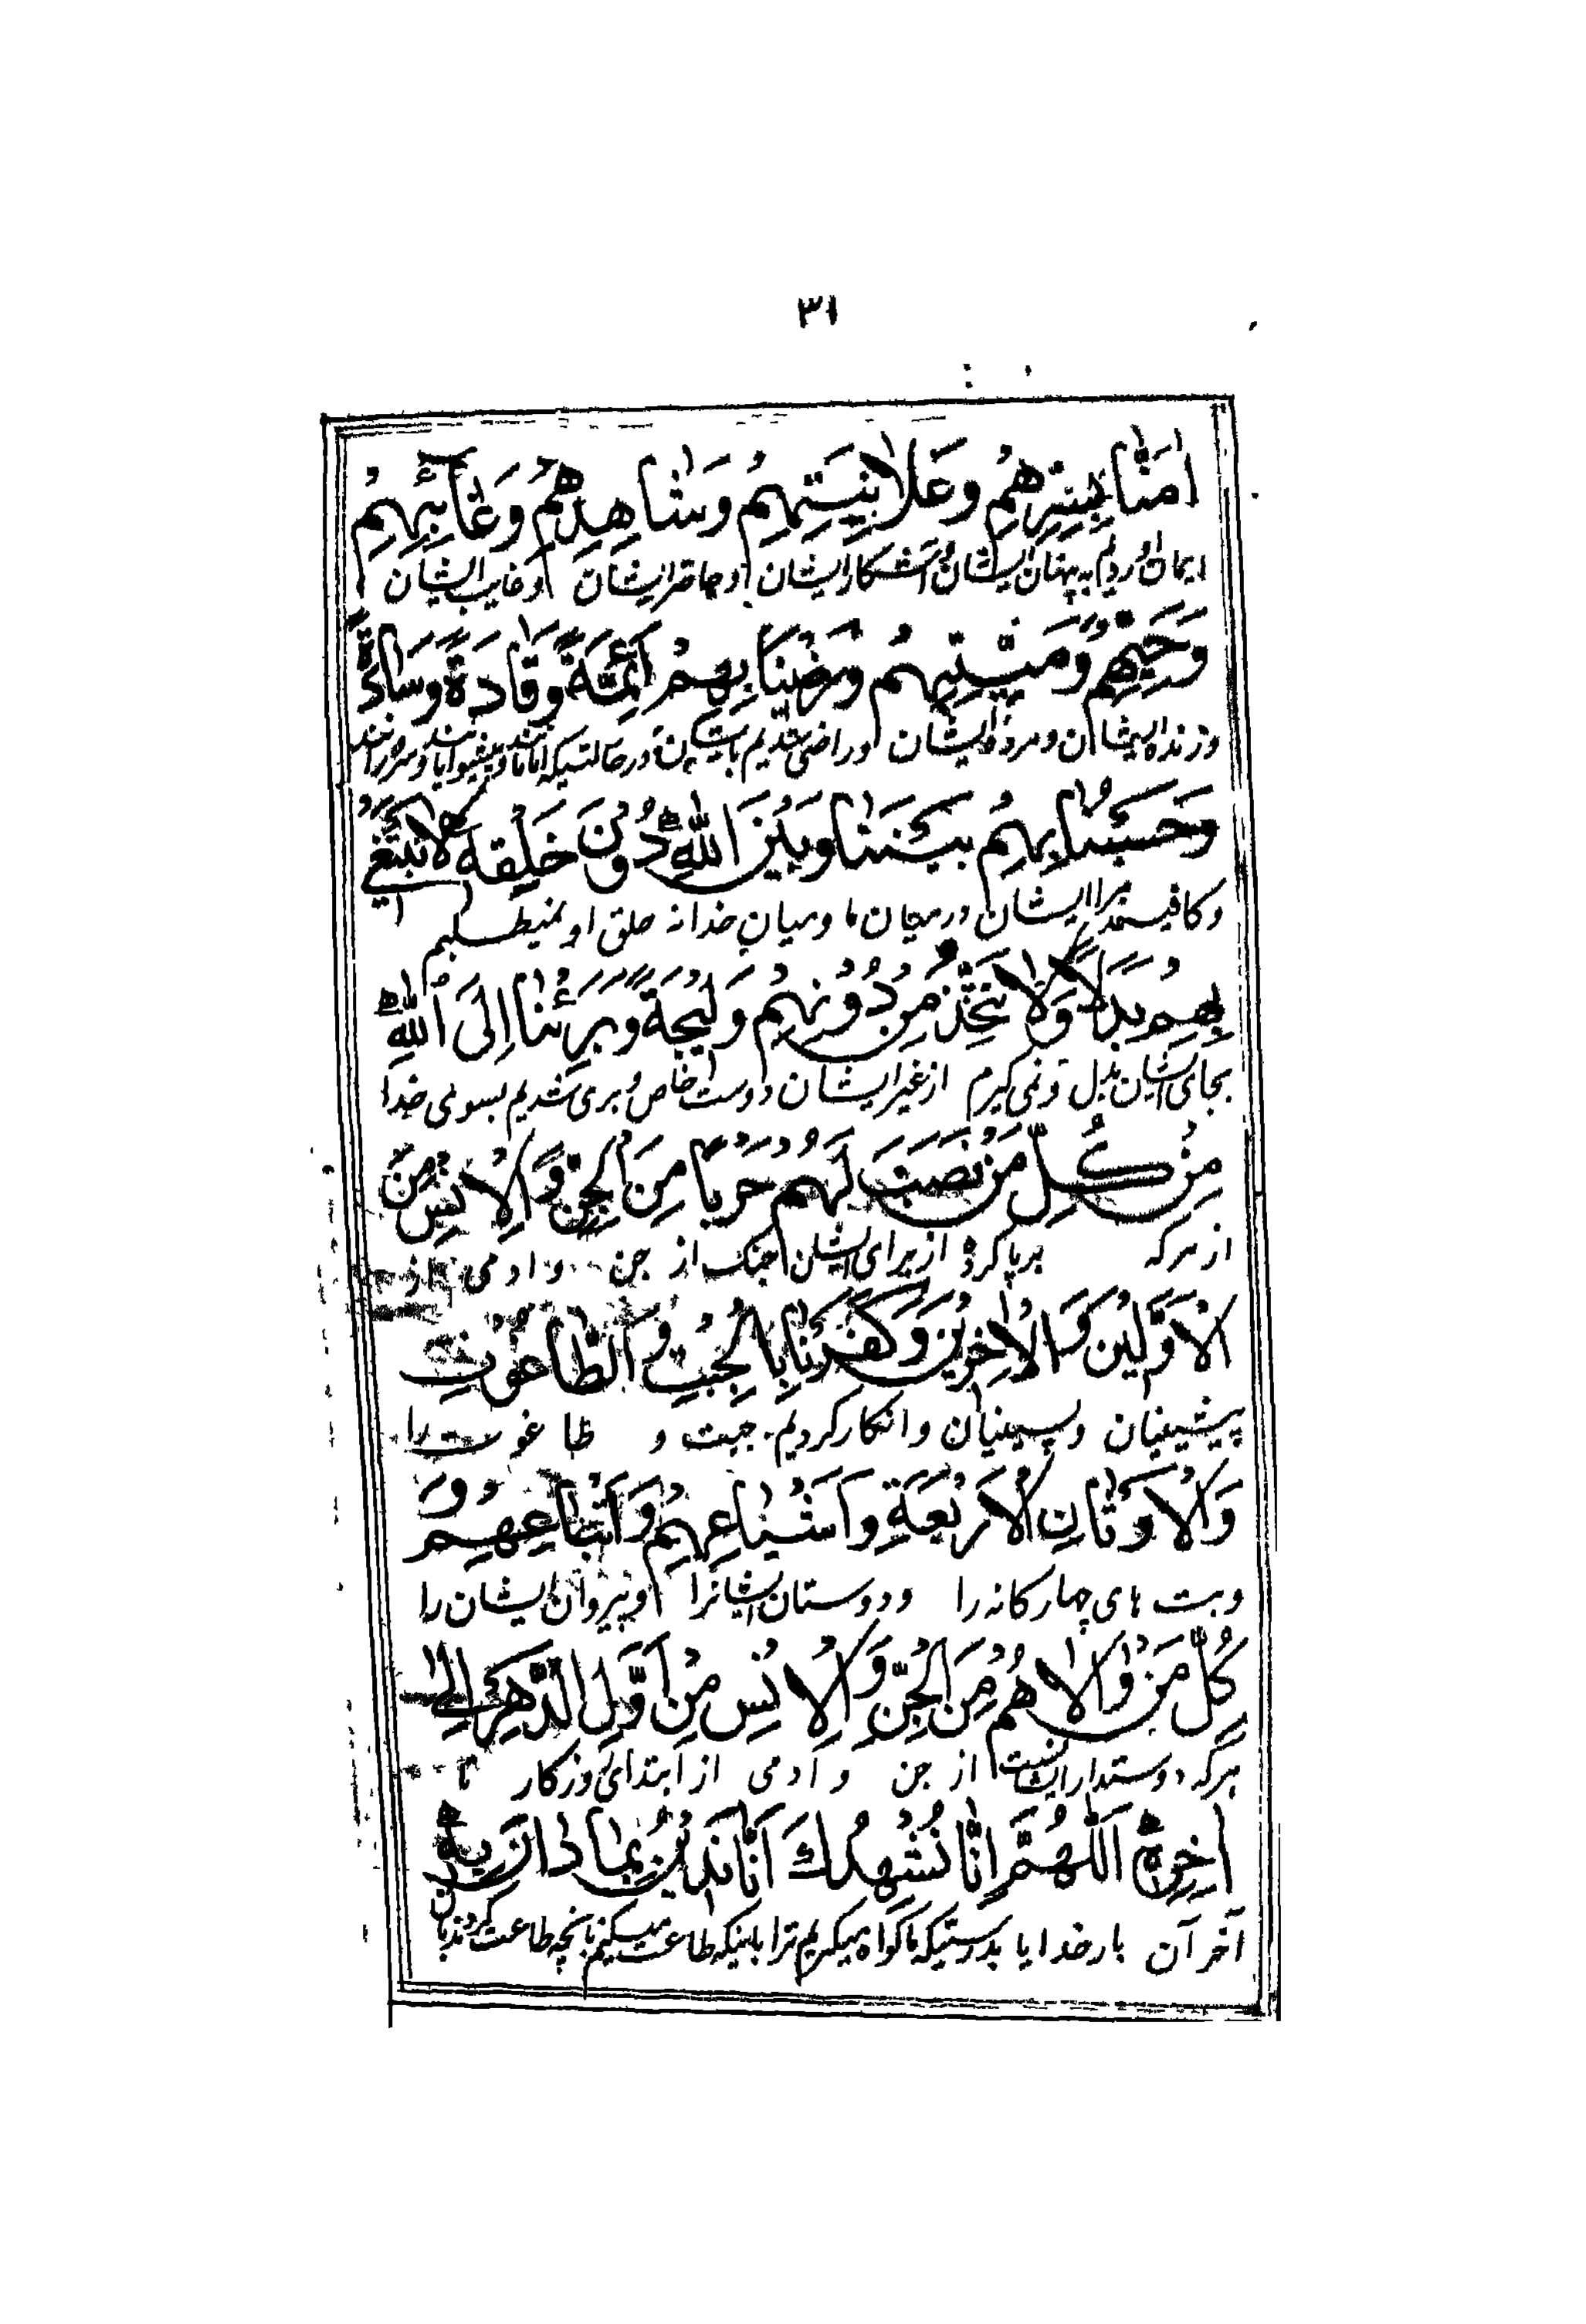 ٣١
اٰمَنّٰا بِسِرِّهِمْ وَعَلاٰنِيَتِهِمْ وَشٰاهِدِهِمْ وَغٰائِبِهِمْ
ایمان آوردیم به پنهان ایشان و آشکار ایشان و حاضر ایشان و غایب ایشان
وَحَيِّهِمْ وَمَيِّتِهِمْ وَرَضِينٰا بِهِمْ اَئِمَّةً وَقٰادَةً وَسٰادَةً
و زنده ایشان و مرده ایشان و راضی شدیم بایشان در حالتیکه امامانند و پیشوایانند و سرورانند
وَحَسْبُنٰا بِهِمْ بَيْنَنٰا وَبَيْنَ اللّٰهِ دُونَ خَلْقِهِ لاٰ نَبْتَغِي
و کافیند مرا ایشان در میان ما و میان خدا نه خلق او نمیطلبیم
بِهِمْ بَدَلاً وَلاٰ نَتَّخِذُ مِنْ دُونِهِمْ وَلِيجَةً وَبَرِئْنٰا اِلَى اللّٰهِ
بجای ایشان بدل و نمی گیرم از غیر ایشان دوست خاص و بری شدیم بسوی خدا
مِنْ كُلِّ مَنْ نَصَبَ لَهُمْ حَرْباً مِنَ الْجِنِّ وَالْاِنْسِ مِنَ
از هرکه برپا کرد از برای ایشان جنک از جن و ادمی از
الْاَوَّلِينَ وَالْاٰخِرِينَ وَكَفَرْنٰا بِالْجِبْتِ وَالطّٰاغُوتِ
پیشینیان و پسینیان و انکار کردیم جبت و طاغوت را
وَالْاَوْثٰانِ الْاَرْبَعَةِ وَاَشْيٰاعِهِمْ وَاَتْبٰاعِهِمْ وَ
و بت های چهارکانه را و دوستان ایشانرا و پیروان ایشان را
كُلِّ مَنْ وٰالاٰهُمْ مِنَ الْجِنِّ وَالْاِنْسِ مِنْ اَوَّلِ الدَّهْرِ اِلىٰ
هرکه دوستدار ایشانست از جن و ادمی از ابتدای روزکار تا
اٰخِرِهِ اَللّٰهُمَّ اِنّٰا نُشْهِدُكَ اَنّٰا نَدِينُ بِمٰا دٰانَ بِهِ
آخر آن بار خدایا بدرستیکه ما کواه میکیریم ترا باینکه طاعت میکنیم بانچه طاعت کردند بان